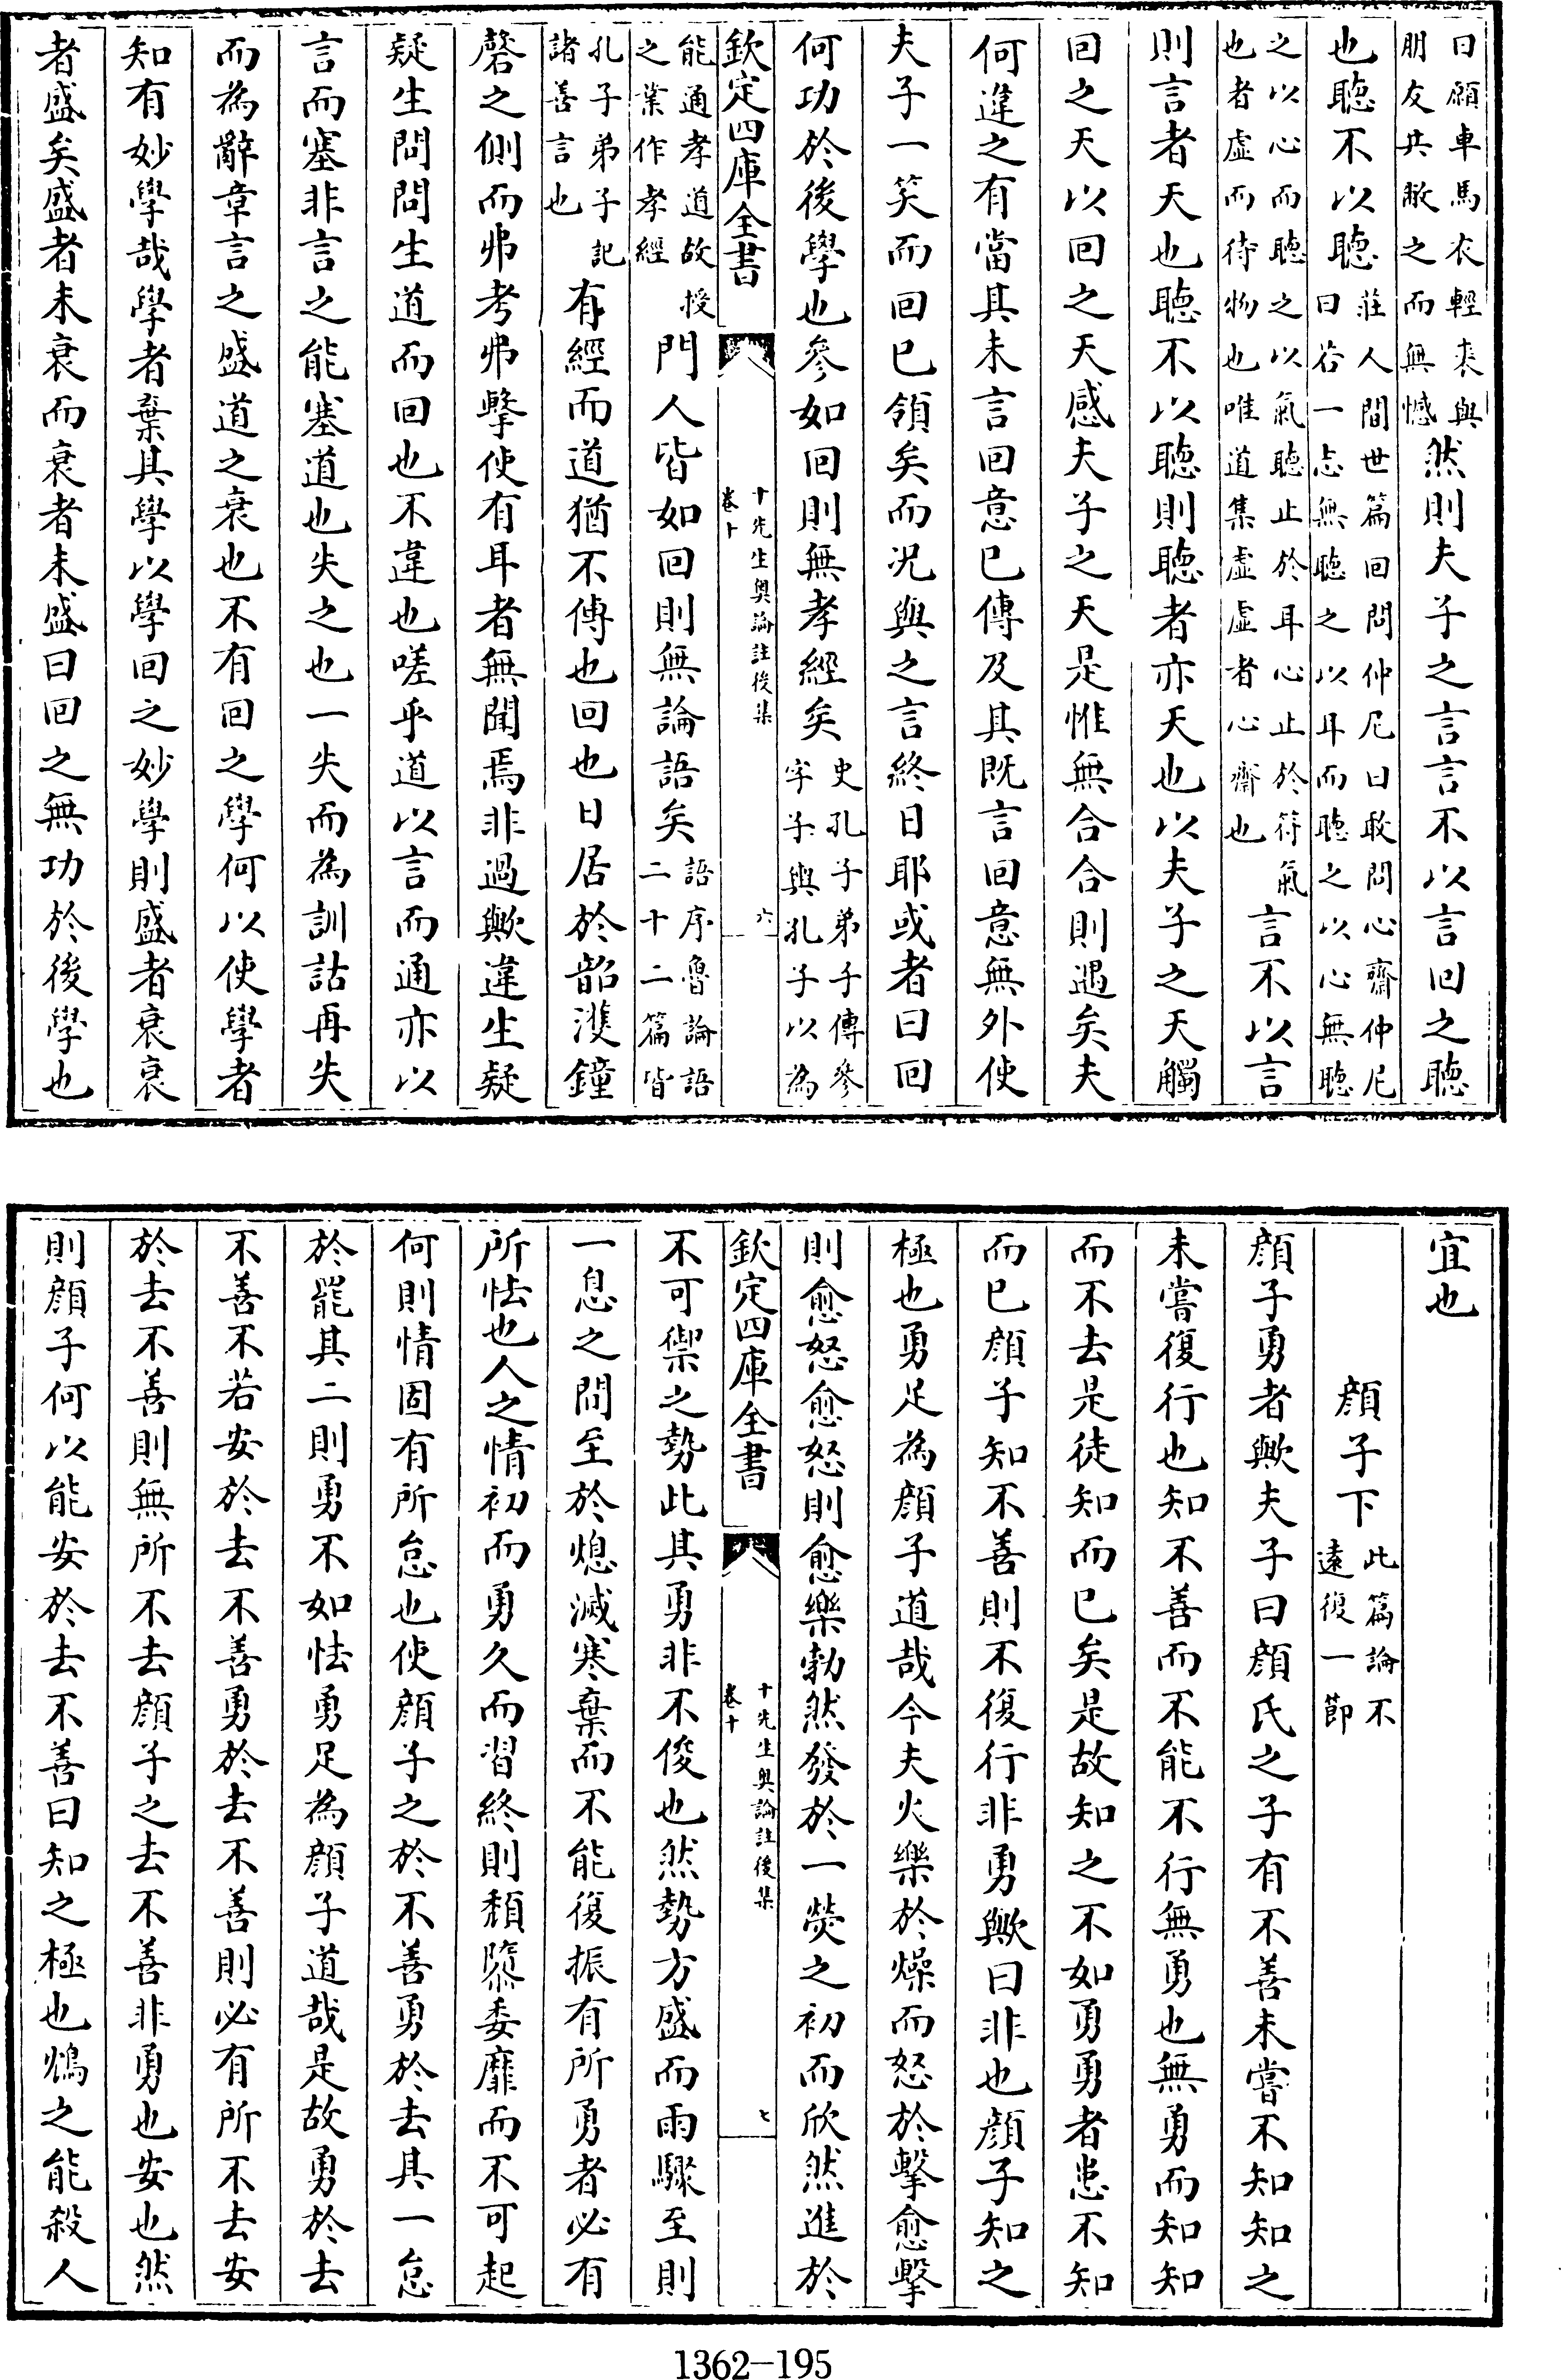 曰願車馬衣輕裘與朋友共敝之而無憾然則夫子之言言不以言回之聽
也聽不以聽莊人間世篇回問仲尼曰敢問心齋仲尼曰若一志無聽之以耳而聽之以心無聽
之以心而聽之以氣聽止於耳心止於符氣也者虛而待物也唯道集虛虛者心齋也言不以言
則言者天也聽不以聽則聽者亦天也以夫子之天觸
回之天以回之天感夫子之天是惟無合合則遇矣夫
何違之有當其未言回意已傳及其既言回意無外使
夫子一笑而回已領矣而况與之言終日耶或者曰回
何功於後學也參如回則無孝經矣史孔子弟子傳參字子輿孔子以為
欽定四庫全書
十先生奧論註後集
卷十
六
能通孝道故授之業作孝經門人皆如回則無論語矣語序魯論語二十二篇皆
孔子弟子記諸善言也有經而道猶不傳也回也日居於韶濩鐘
磬之側而弗考弗擊使有耳者無聞焉非過歟違生疑
疑生問問生道而回也不違也嗟乎道以言而通亦以
言而塞非言之能塞道也失之也一失而為訓詁再失
而為辭章言之盛道之衰也不有回之學何以使學者
知有妙學哉學者棄其學以學回之妙學則盛者衰衰
者盛矣盛者未衰而衰者未盛曰回之無功於後學也
宜也
顔子下此篇論不遠復一節
顔子勇者歟夫子曰顔氏之子有不善未嘗不知知之
未嘗復行也知不善而不能不行無勇也無勇而知知
而不去是徒知而已矣是故知之不如勇勇者患不知
而已顔子知不善則不復行非勇歟曰非也顔子知之
極也勇足為顔子道哉今夫火樂於燥而怒於擊愈擊
則愈怒愈怒則愈樂勃然發於一熒之初而欣然進於
欽定四庫全書
十先生奧論註後集
卷十
七
不可禦之勢此其勇非不俊也然勢方盛而雨驟至則
一息之間至於熄滅寒棄而不能復振有所勇者必有
所怯也人之情初而勇久而習終則頽隳委靡而不可起
何則情固有所怠也使顔子之於不善勇於去其一怠
於罷其二則勇不如怯勇足為顔子道哉是故勇於去
不善不若安於去不善勇於去不善則必有所不去安
於去不善則無所不去顔子之去不善非勇也安也然
則顔子何以能安於去不善曰知之極也鴆之能殺人
1362—195